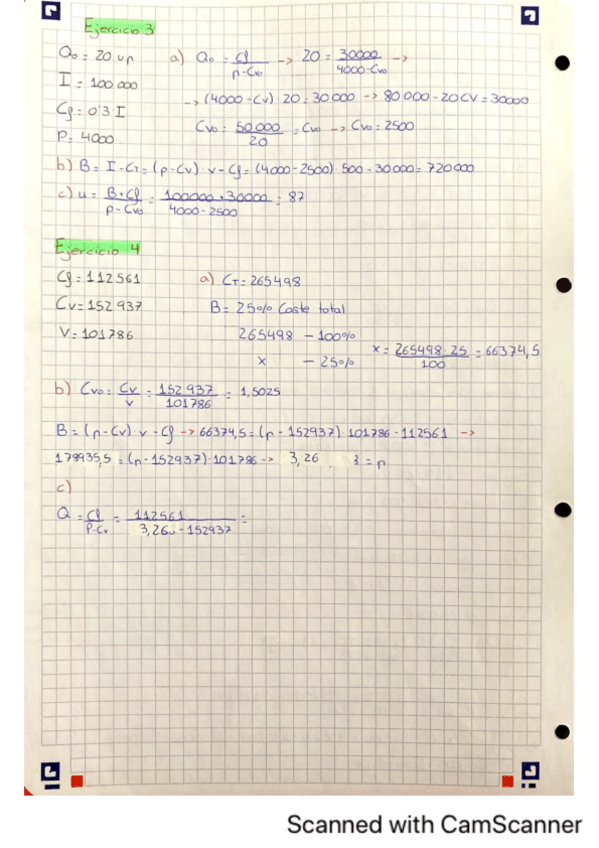 Ejercicio 3
Q₀ = 20 up a) Q₀ = Cf / p-Cv₀ -> 20 = 30000 / 4000-Cv₀ ->
I = 100 000 -> (4000 - Cv) 20 = 30000 -> 80 000 - 20 CV = 30000
Cf = 0'3 · I
P = 4000 Cv₀ = 50 000 / 20 = Cv₀ -> Cv₀ = 2500
b) B = I - CT = (p - Cv) · v - Cf = (4000 - 2500) · 500 - 30 000 = 720 000
c) u = B + Cf / p - Cv₀ = 100000 + 30000 / 4000 - 2500 = 87
Ejercicio 4
Cf = 112 561 a) CT = 265498
Cv = 152 937 B = 25% Coste total
V = 101786 265498 - 100%
x - 25% x = 265498 · 25 / 100 = 66374,5
b) Cv₀ = Cv / v = 152 937 / 101786 = 1,5025
B = (p - Cv) v - Cf -> 66374,5 = (p - 152937) · 101786 - 112561 ->
178935,5 = (p - 152937) · 101786 -> 3,26 = p
c)
Q = Cf / P - Cv = 112561 / 3,26 - 152937 =
Scanned with CamScanner